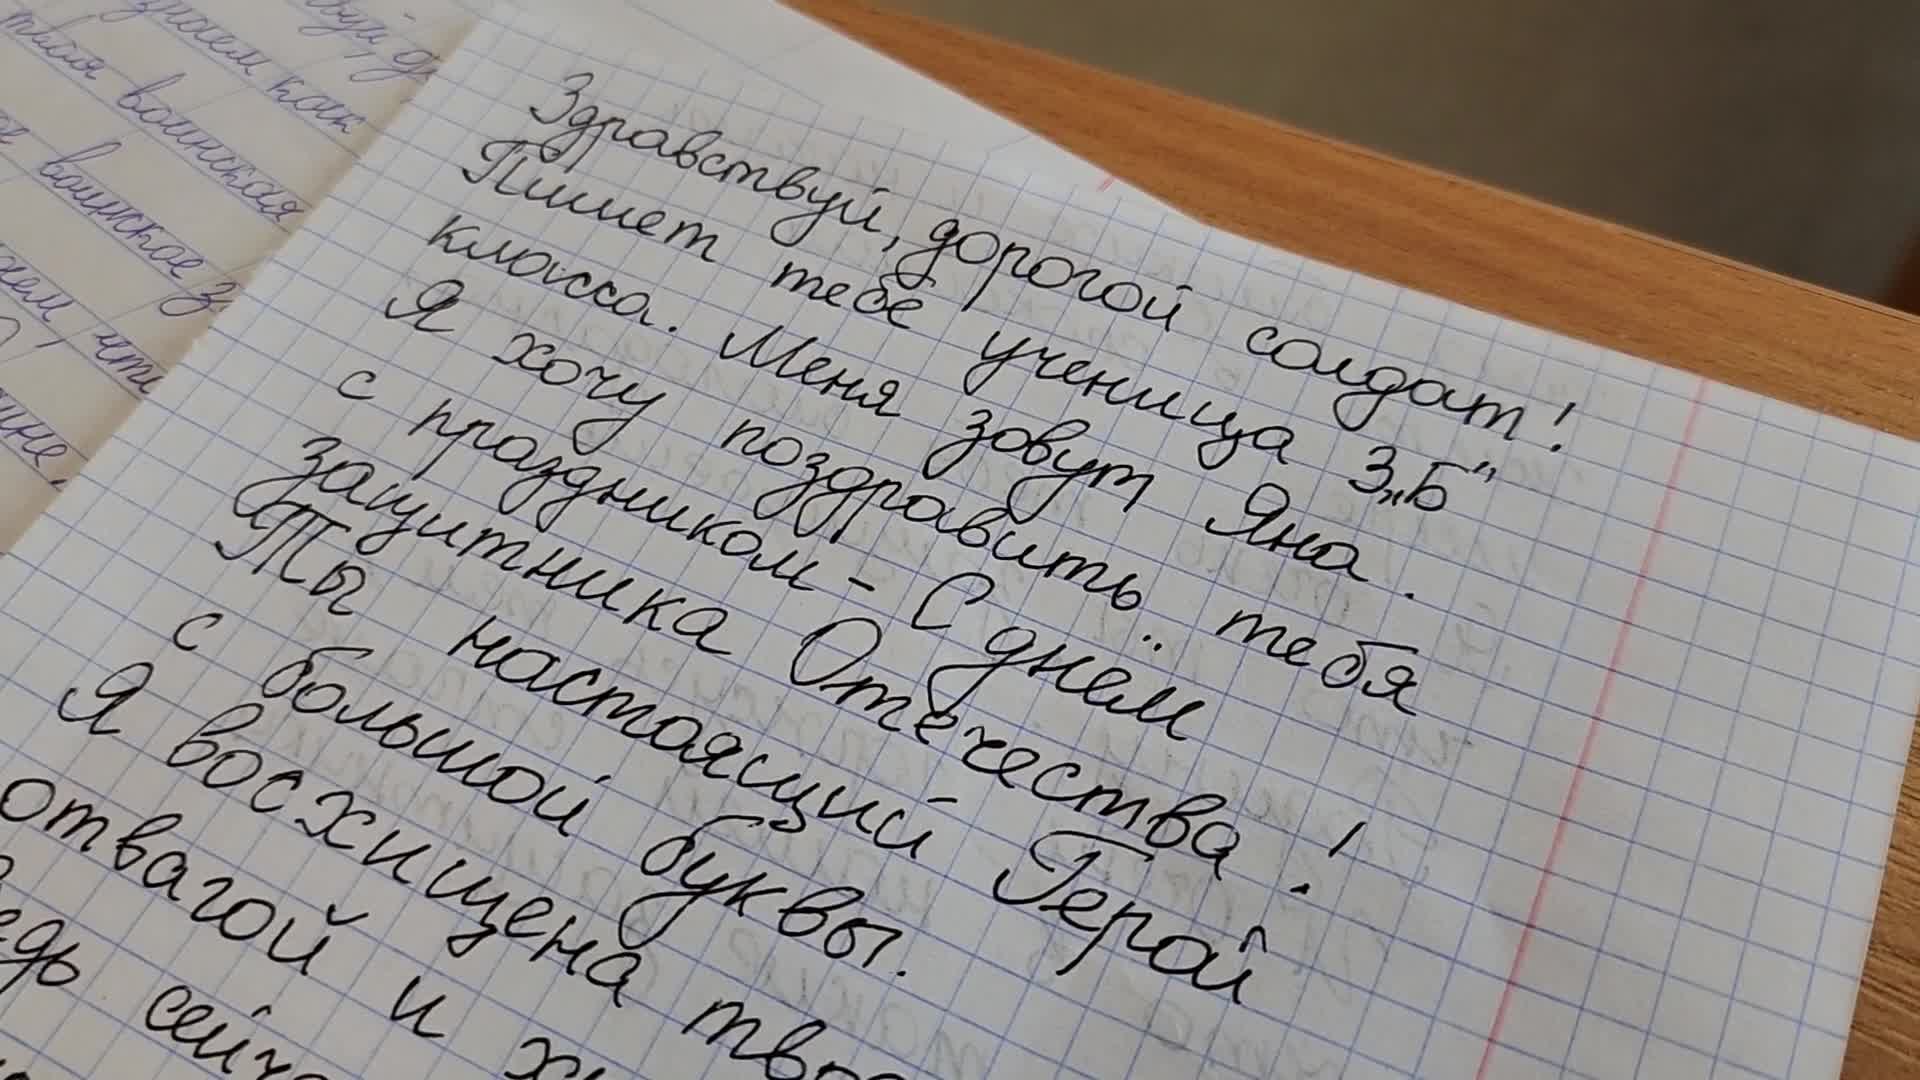 вуй
знаем как
воинская
воинское
что
Здравствуй, дорогой солдат!
Пишет тебе ученица 3„Б"
класса. Меня зовут Яна.
Я хочу поздравить тебя
с праздником - С днём
защитника Отечества!
Ты настоящий Герой
с большой буквы.
Я восхищена
отвагой и
сейч